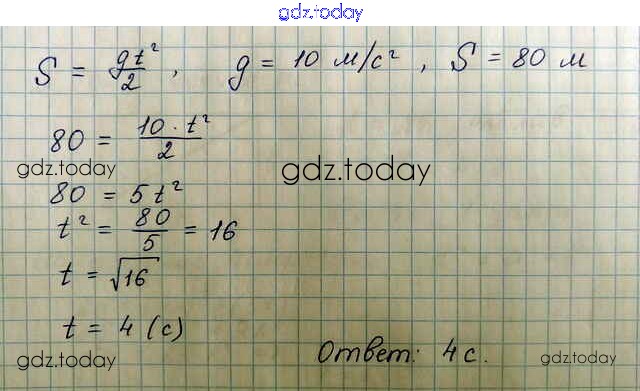 gdz.today
S = gt²/2, g = 10 м/с², S = 80 м
80 = 10 · t²/2
gdz.today
gdz.today
80 = 5t²
t² = 80/5 = 16
t = √16
t = 4 (с)
gdz.today
Ответ: 4 с.
gdz.today